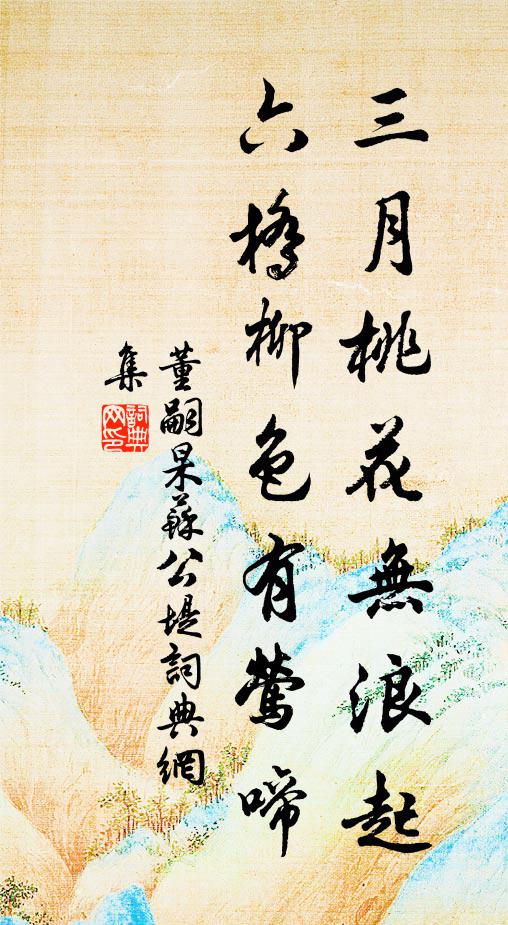 三月桃花無浪起
六橋柳色有鶯啼
董嗣杲蘇公堤詞典網
集
詞典
网印